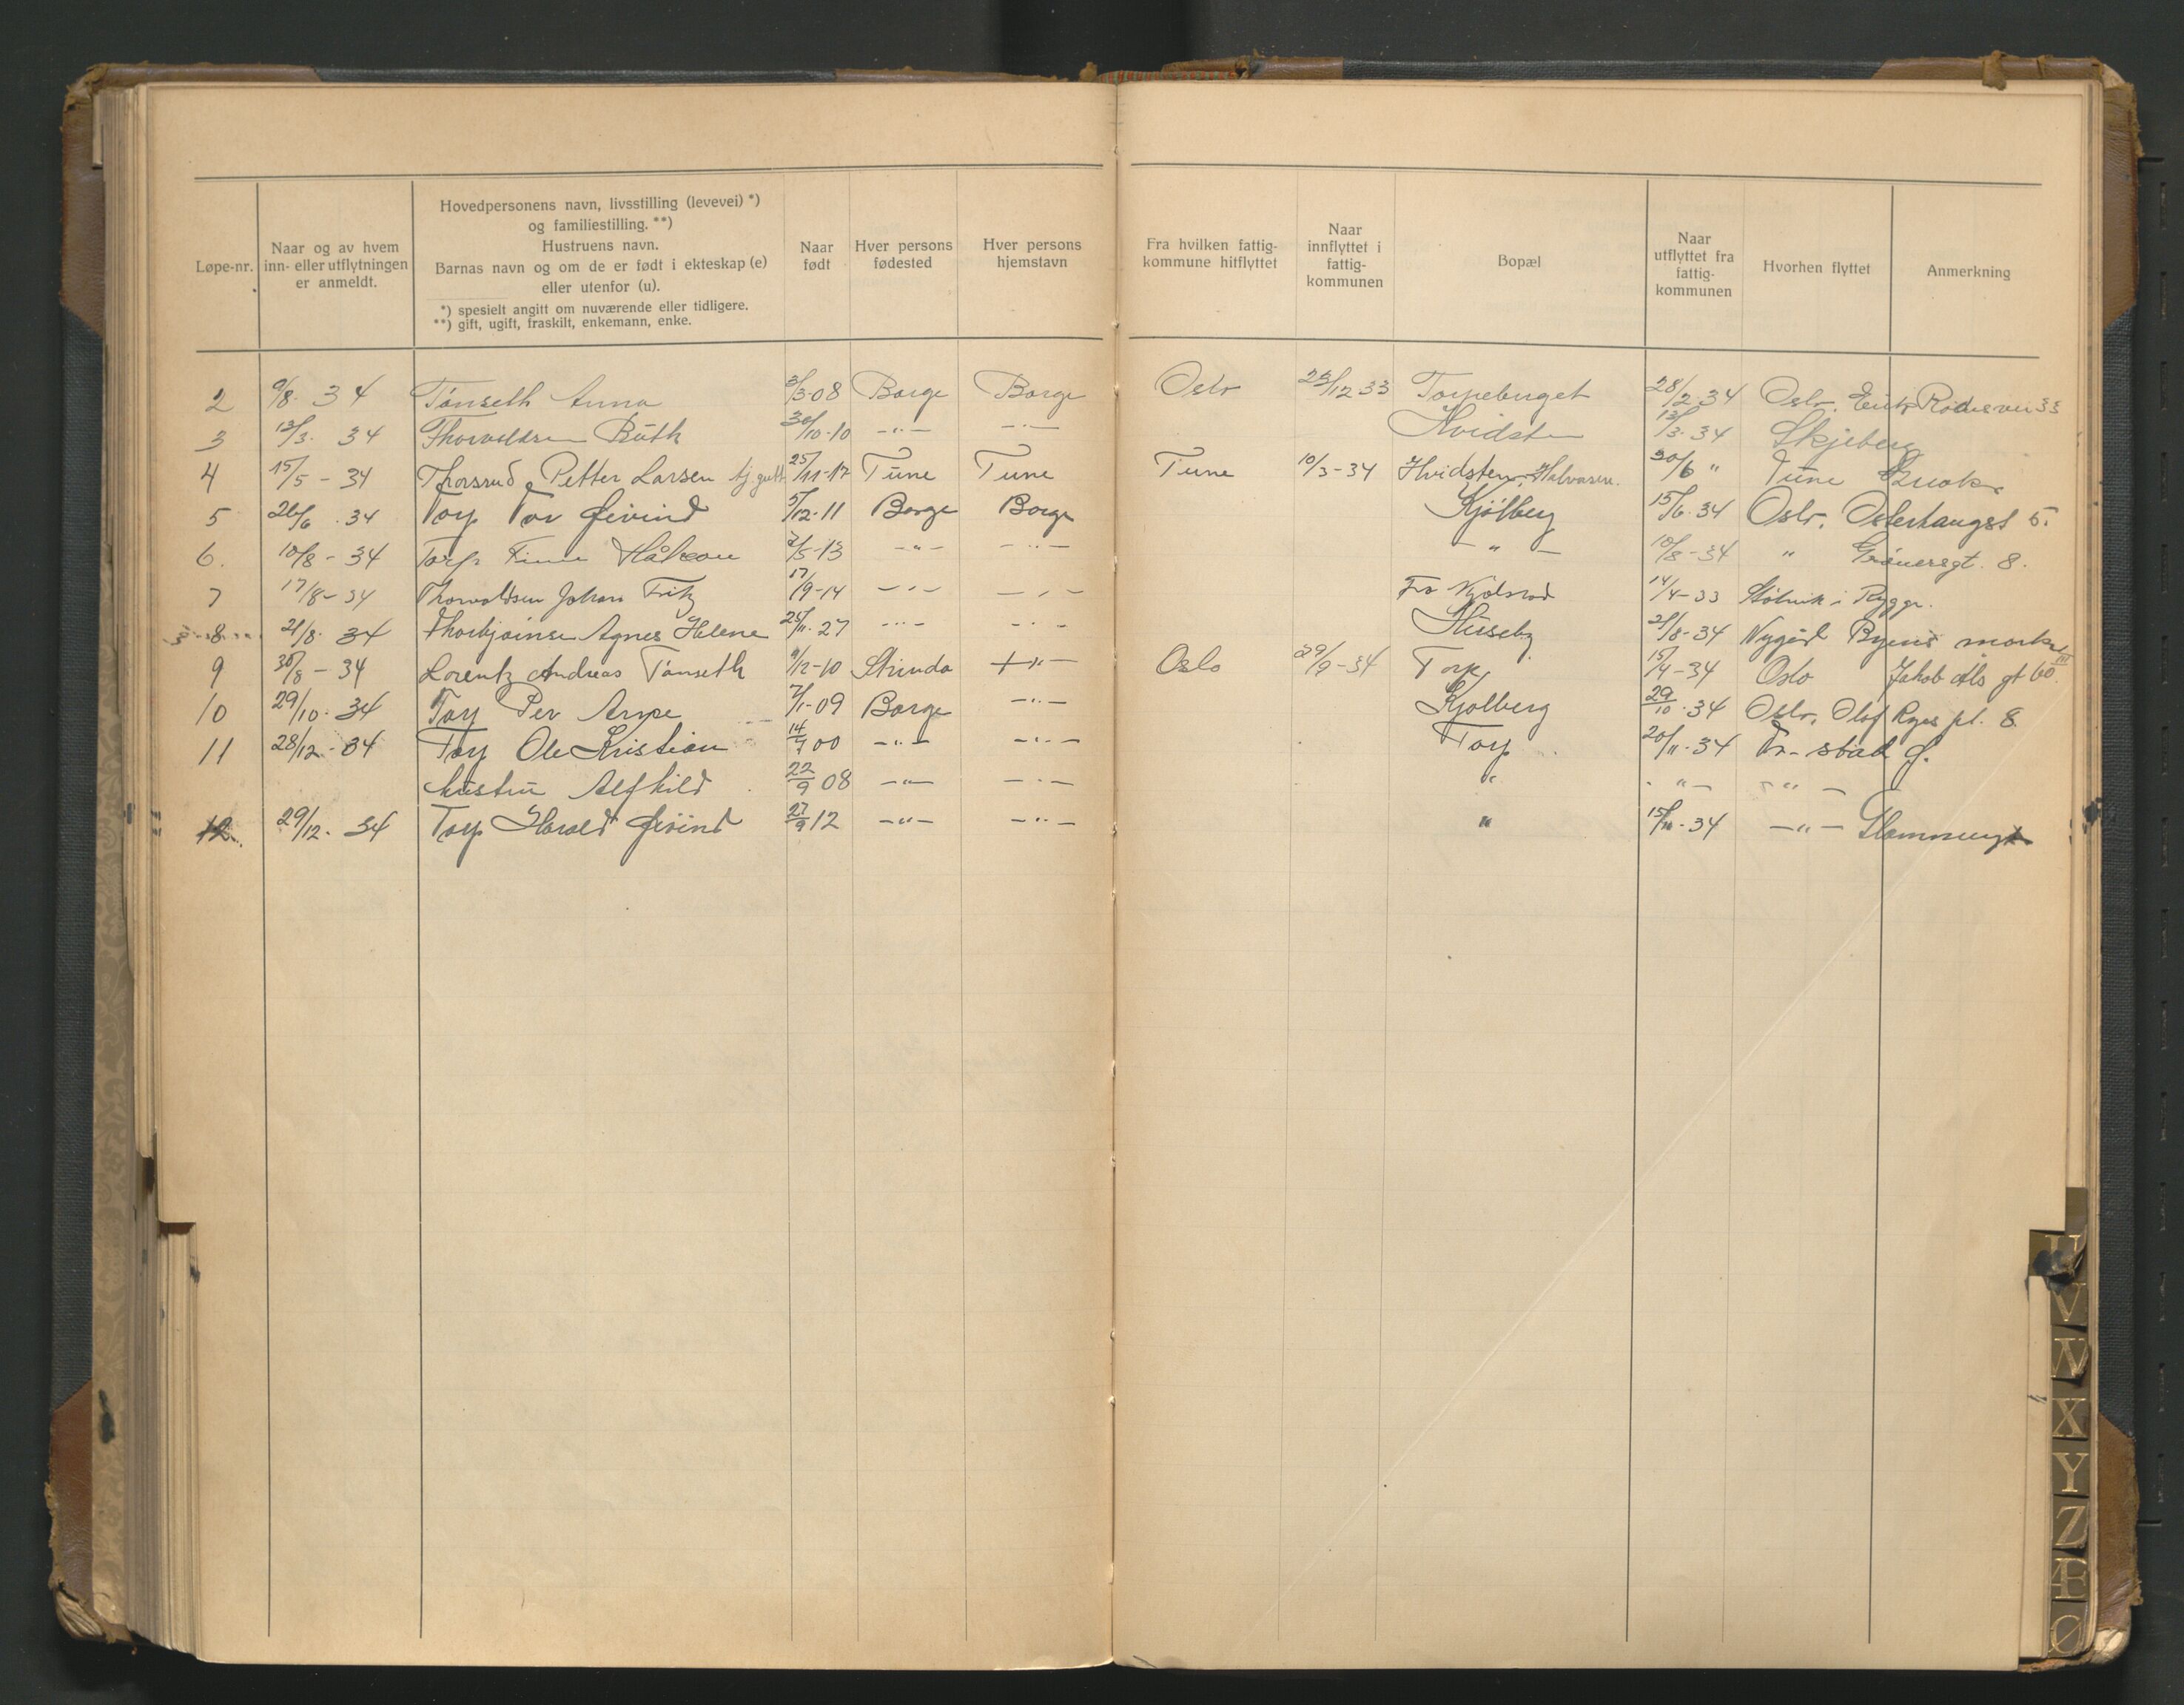 Løpe-nr.
Naar og av hvem inn- eller utflytningen er anmeldt.
Hovedpersonens navn, livsstilling (levevei) *)
og familiestilling. **)
Hustruens navn.
Barnas navn og om de er født i ekteskap (e)
eller utenfor (u).
*) spesielt angitt om nuværende eller tidligere.
**) gift, ugift, fraskilt, enkemann, enke.
Naar født
Hver persons fødested
Hver persons hjemstavn
Fra hvilken fattig-kommune hitflyttet
Naar innflyttet i fattig-kommunen
Bopæl
Naar utflyttet fra fattig-kommunen
Hvorhen flyttet
Anmerkning
2 9/8. 34 Tönseth Anna 3/3-08 Borge Borge Oslo 12 33 Torpeberget 28/2 34 Oslo.
3 13/3. 34 Thorvaldsen Ruth 30/10-10 -"- -"- Hvidsten 13/3-34 Skjeberg
4 15/5 - 34 Thorsrud Petter Larsen tj.gutt 25/11-17 Tune Tune Tune 10/3-34 Hvidsten 30/6 " Tune
5 26/6 . 34 Torp Tor Øivind 5/12-11 Borge Borge Kjølberg 15/6-34 Oslo. 5.
6. 10/8 - 34 Torp Finn Håkon 2/5-13 -"- -"- -"- 10/8-34 " 8.
7 17/8 - 34 Thorvaldsen Johan Fritz 17/9-14 -"- -"- Fra 14/4-33 i Rygge.
8 21/8. 34 Thorbjørnsen Agnes Helene 25/11. 27 -"- -"- Huseby 21/8-34 Nygård
9 30/8 - 34 Lorentz Andreas Tönseth 9/12-10 Strinda -"- Oslo 29/9-34 Torp 15/4-34 Oslo Jakob Als gt 60 III
10 29/10. 34 Torp Per Arne 7/1-09 Borge -"- Kjølberg 29/10. 34 Oslo. Olaf Ryes pl. 8
11 28/12 - 34 Torp Ole Kristian 00 -"- -"- Torp 20/11-34 Fr.stad Ø.
hustru Alfhild 22/9 08 -"- -"- " -"- -"-
12. 29/12. 34 Torp Harald Øivind 27/9 12 -"- -"- " 15/11-34 -"-
U
V
W
X
Y
Z
Æ
Ø